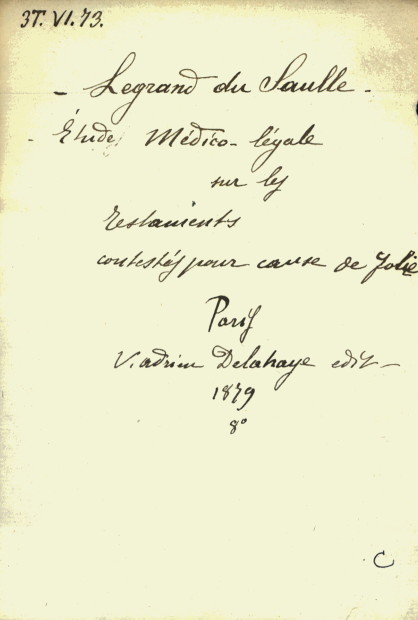 3T. VI. 73.
- Legrand du Saulle -
- Études Médico-légale
sur les
testaments
contestés pour cause de folie
Paris
V. adrien Delahaye edit -
1879
8°
C